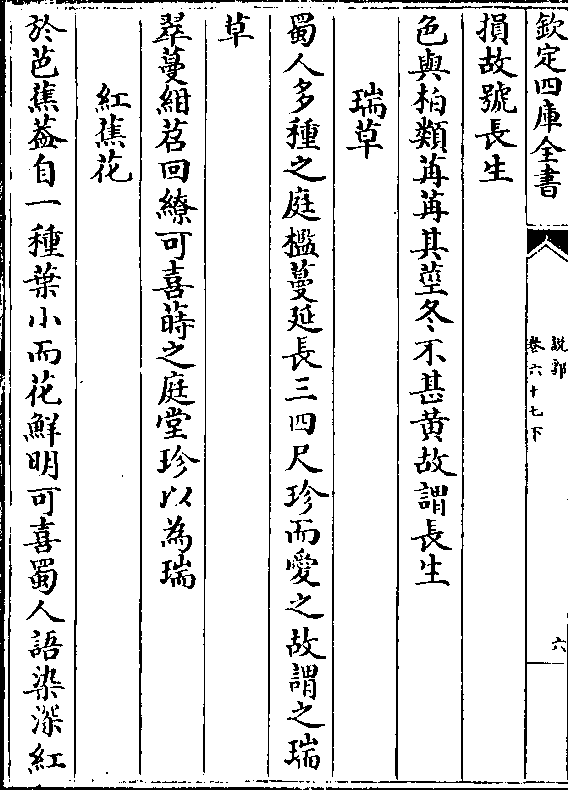 欽定四庫全書
說郛
卷六十七下
六
損故號長生
色與柏類苒苒其莖冬不甚黄故謂長生
瑞草
蜀人多種之庭檻蔓延長三四尺珍而愛之故謂之瑞
草
翠蔓紺苕回繚可喜蒔之庭堂珍以為瑞
紅蕉花
於芭蕉葢自一種葉小而花鮮明可喜蜀人語染深紅